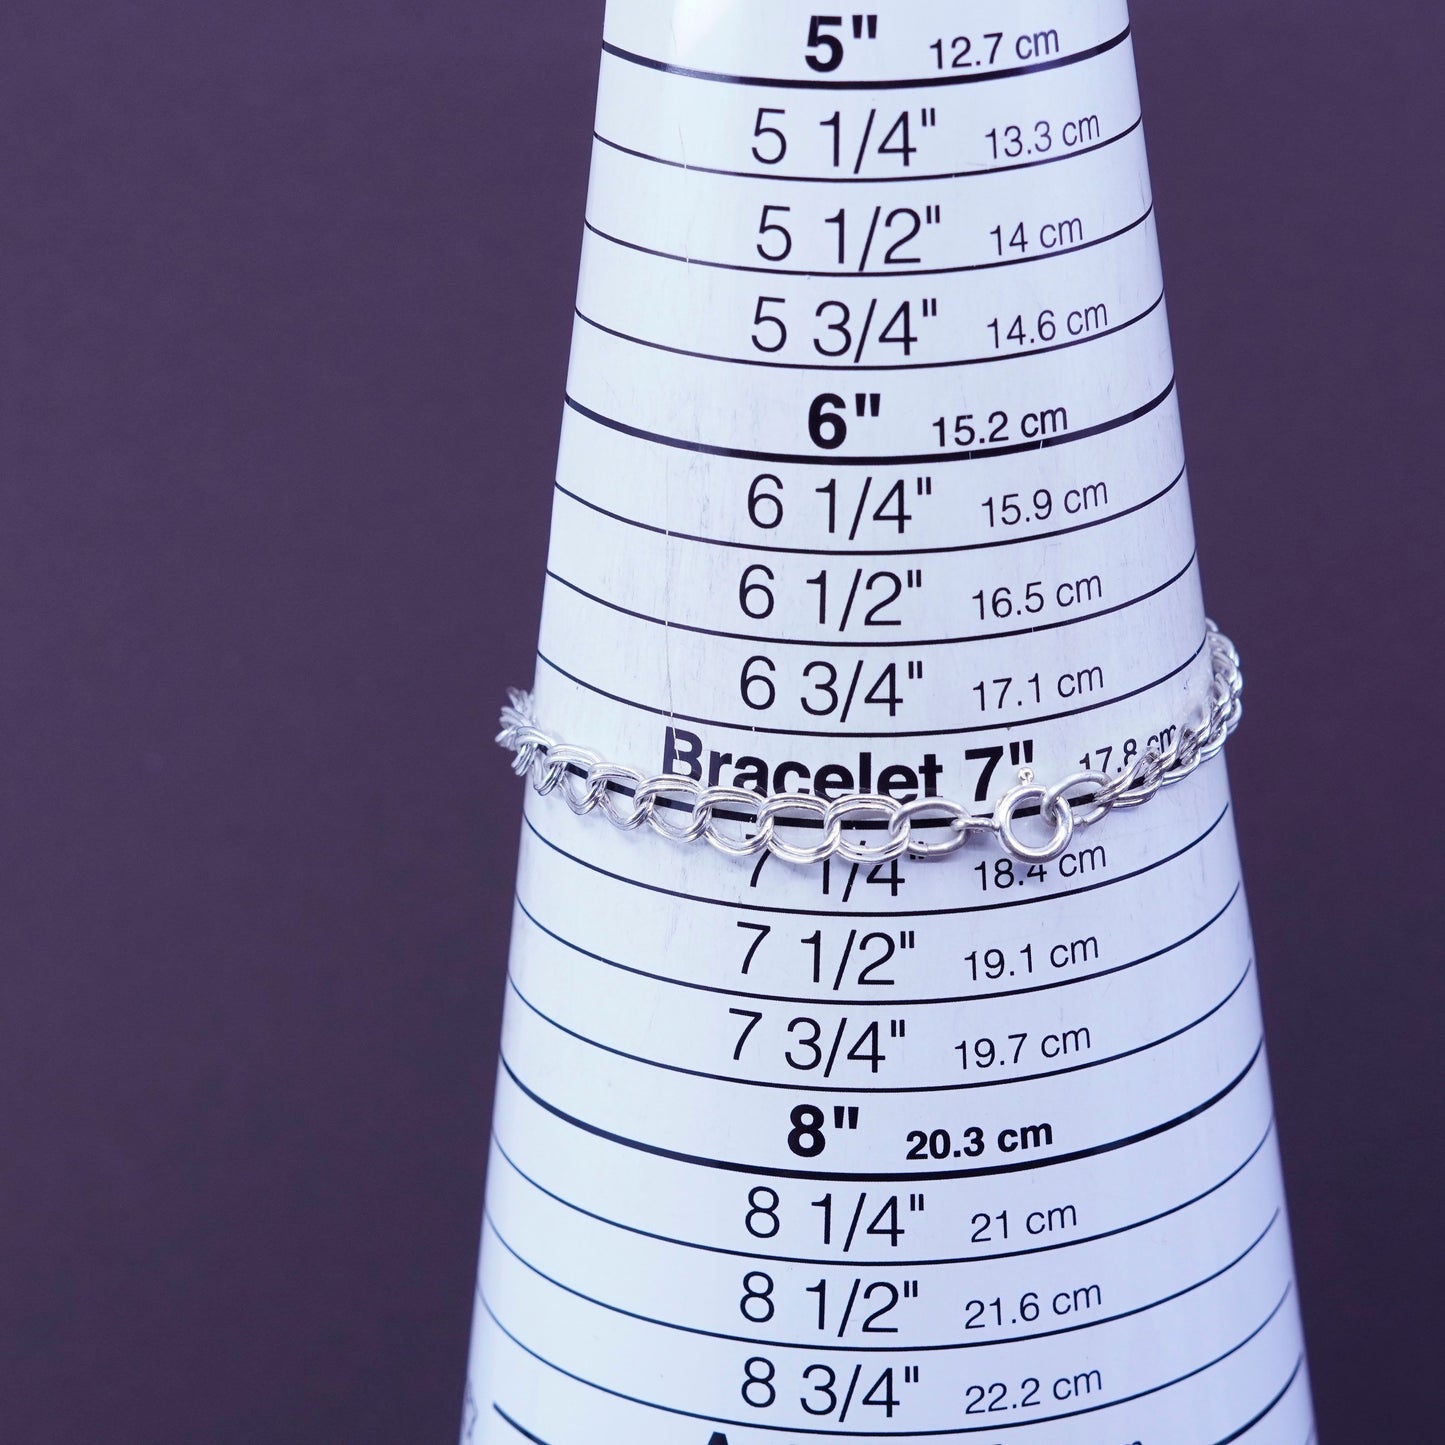 5" 12.7 cm
5 1/4" 13.3 cm
5 1/2" 14 cm
5 3/4" 14.6 cm
6" 15.2 cm
6 1/4" 15.9 cm
6 1/2" 16.5 cm
6 3/4" 17.1 cm
Bracelet 7" 17.8 cm
7 1/4" 18.4 cm
7 1/2" 19.1 cm
7 3/4" 19.7 cm
8" 20.3 cm
8 1/4" 21 cm
8 1/2" 21.6 cm
8 3/4" 22.2 cm